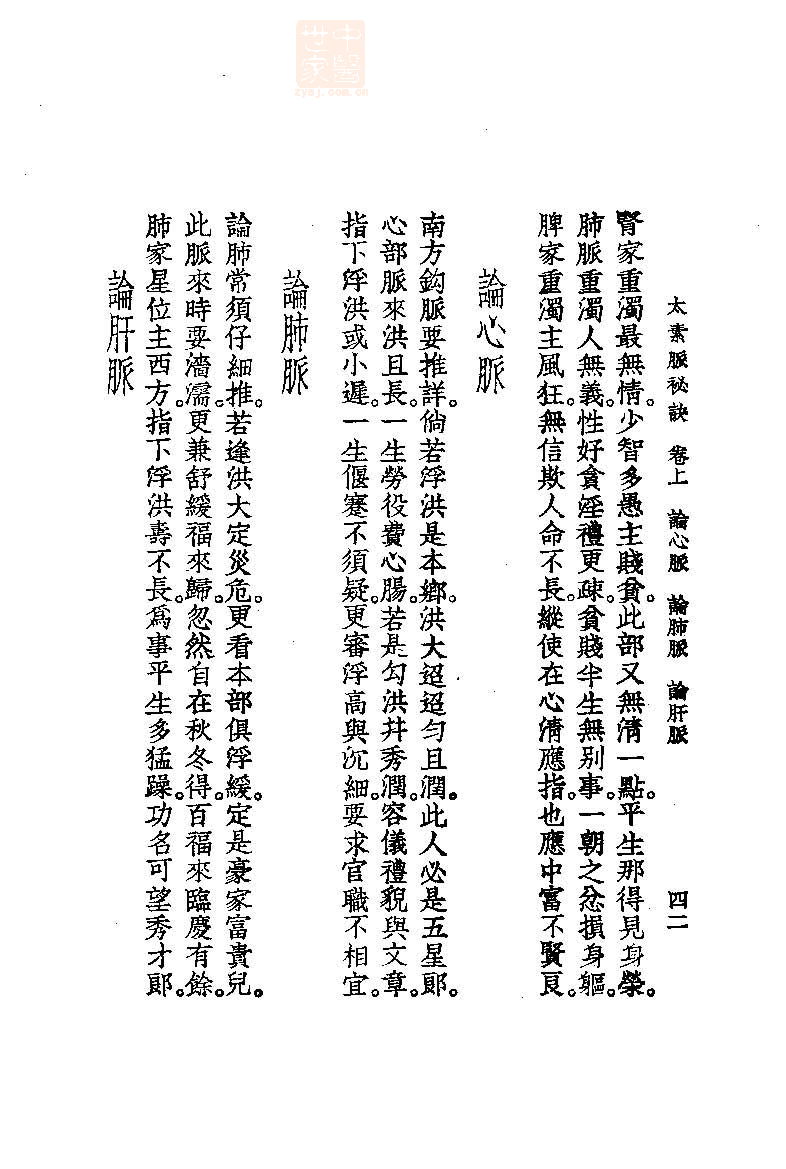 中醫世家
zysj.com.cn
太素脈祕訣 卷上 論心脈 論肺脈 論肝脈 四二
腎家重濁最無情。少智多愚主賤貧。此部又無清一點。平生那得見身榮。
肺脈重濁人無義。性好貪淫禮更疎。貧賤半生無別事。一朝之忿損身軀。
脾家重濁主風狂。無信欺人命不長。縱使在心清應指。也應中富不賢良。
論心脈
南方鈎脈要推詳。倘若浮洪是本鄉。洪大迢迢勻且潤。此人必是五星郎。
心部脈來洪且長。一生勞役費心腸。若是勾洪幷秀潤。容儀禮貌與文章。
指下浮洪或小遲。一生偃蹇不須疑。更審浮高與沉細。要求官職不相宜。
論肺脈
論肺常須仔細推。若逢洪大定災危。更看本部俱浮緩。定是豪家富貴兒。
此脈來時要濇濡。更兼舒緩福來歸。忽然自在秋冬得。百福來臨慶有餘。
肺家星位主西方。指下浮洪壽不長。爲事平生多猛躁。功名可望秀才郎。
論肝脈